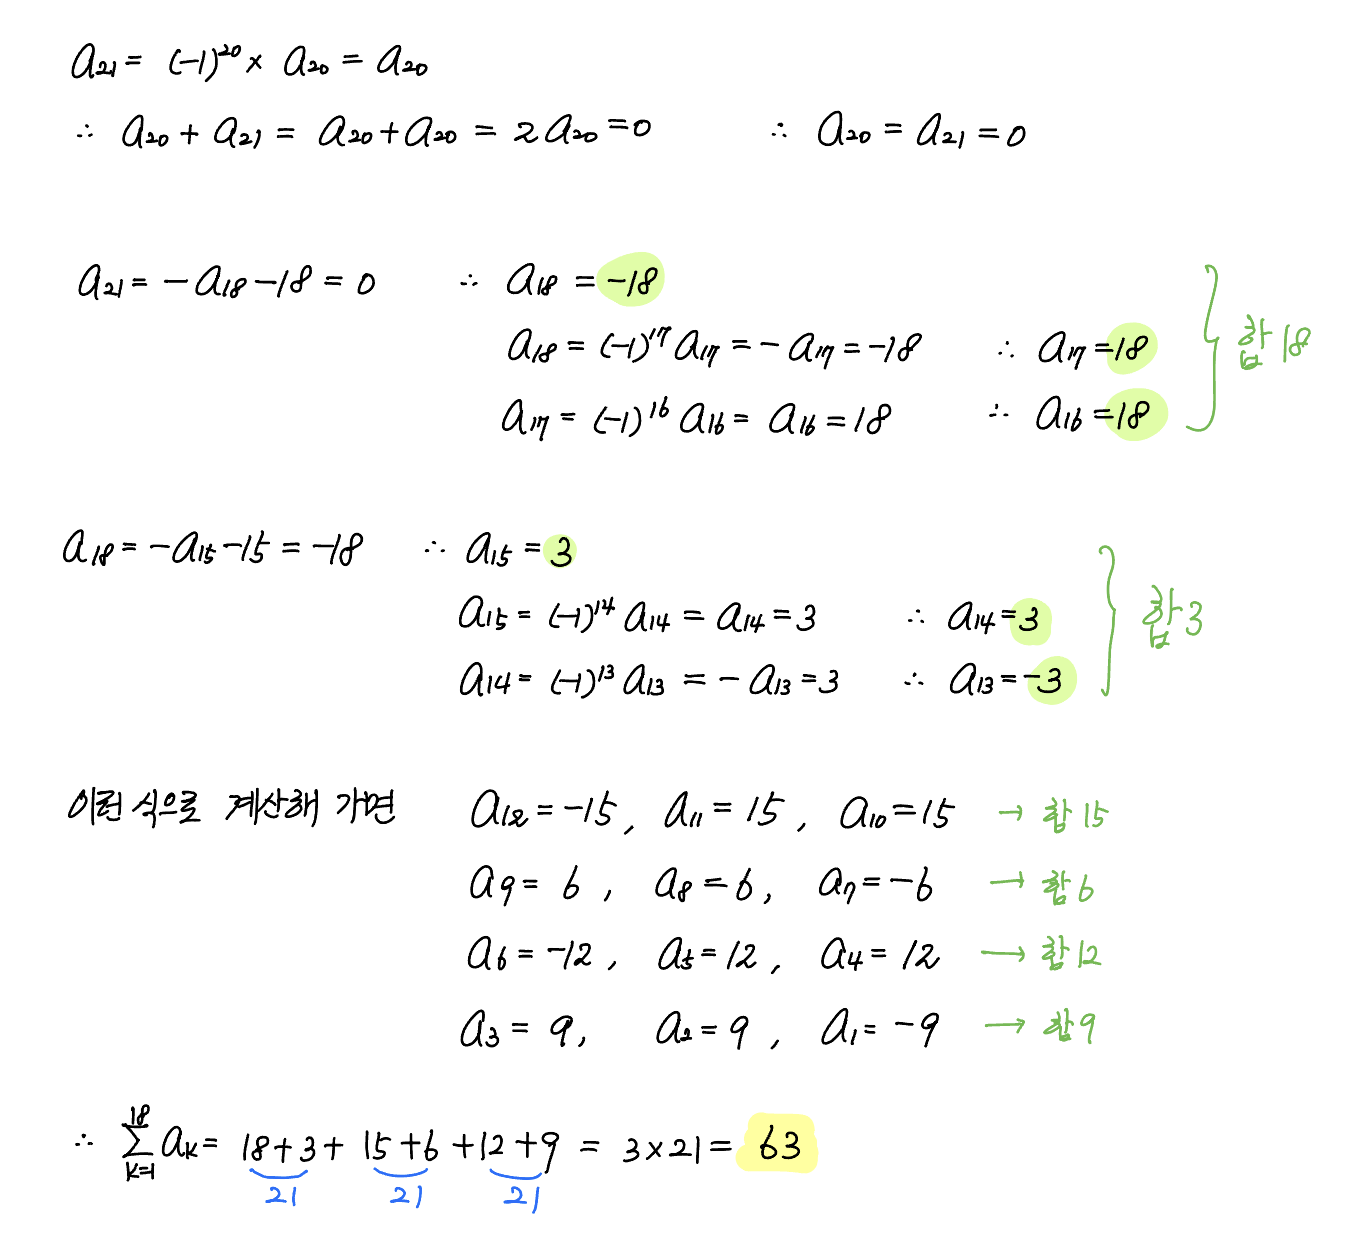 a₂₁ = (-1)²⁰ × a₂₀ = a₂₀
∴ a₂₀ + a₂₁ = a₂₀ + a₂₀ = 2a₂₀ = 0 ∴ a₂₀ = a₂₁ = 0
a₂₁ = -a₁₈ - 18 = 0 ∴ a₁₈ = -18
a₁₈ = (-1)¹⁷ a₁₇ = -a₁₇ = -18 ∴ a₁₇ = 18
a₁₇ = (-1)¹⁶ a₁₆ = a₁₆ = 18 ∴ a₁₆ = 18
합 18
a₁₈ = -a₁₅ - 15 = -18 ∴ a₁₅ = 3
a₁₅ = (-1)¹⁴ a₁₄ = a₁₄ = 3 ∴ a₁₄ = 3
a₁₄ = (-1)¹³ a₁₃ = -a₁₃ = 3 ∴ a₁₃ = -3
합 3
이런 식으로 계산해 가면 a₁₂ = -15, a₁₁ = 15, a₁₀ = 15 → 합 15
a₉ = 6, a₈ = 6, a₇ = -6 → 합 6
a₆ = -12, a₅ = 12, a₄ = 12 → 합 12
a₃ = 9, a₂ = 9, a₁ = -9 → 합 9
18
∴ ∑ aₖ = 18 + 3 + 15 + 6 + 12 + 9 = 3 × 21 = 63
k=1
21 21 21